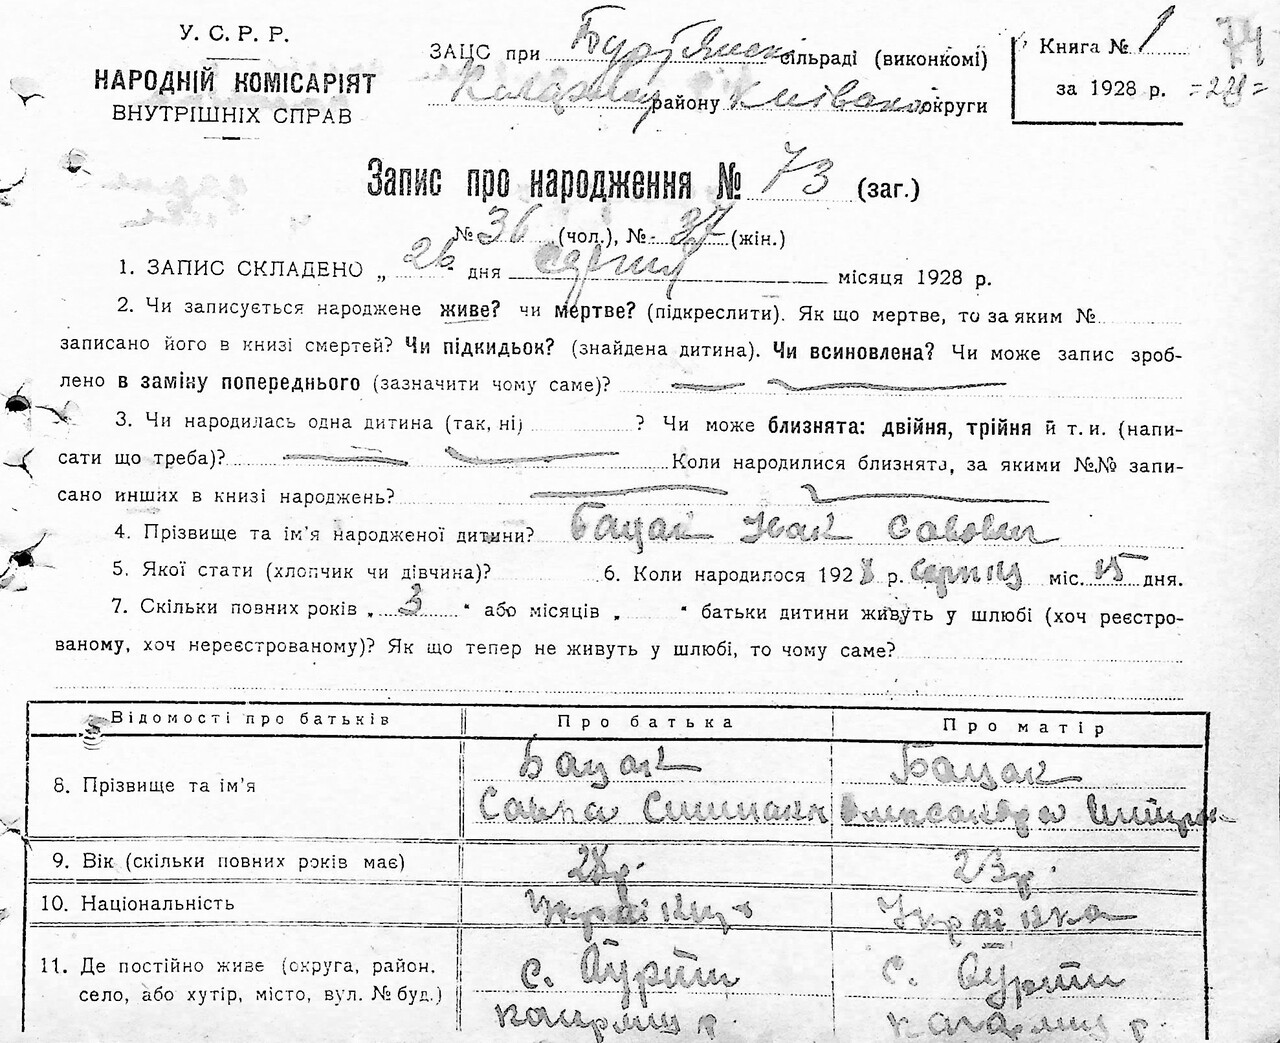 У. С. Р. Р.
НАРОДНІЙ КОМІСАРІЯТ
ВНУТРІШНІХ СПРАВ
ЗАЦС при сільраді (виконкомі)
району Київської округи
Книга № 1
за 1928 р.
74
=228=
Запис про народження № 73 (заг.)
№ 36 (чол.), № 37 (жін.)
1. ЗАПИС СКЛАДЕНО „ 26 " дня серпня місяця 1928 р.
2. Чи записується народжене живе? чи мертве? (підкреслити). Як що мертве, то за яким №
записано його в книзі смертей? Чи підкидьок? (знайдена дитина). Чи всиновлена? Чи може запис зроб-
лено в заміну попереднього (зазначити чому саме)?
3. Чи народилась одна дитина (так, ні) ? Чи може близнята: двійня, трійня й т. и. (напи-
сати що треба)? Коли народилися близнята, за якими №№ запи-
сано инших в книзі народжень?
4. Прізвище та ім'я народженої дитини? Бацак Іван Савович
5. Якої стати (хлопчик чи дівчина)? 6. Коли народилося 1928 р. серпня міс. 15 дня.
7. Скільки повних років „ 3 " або місяців „ " батьки дитини живуть у шлюбі (хоч реєстро-
ваному, хоч нереєстрованому)? Як що тепер не живуть у шлюбі, то чому саме?
Відомості про батьків Про батька Про матір
8. Прізвище та ім'я Бацак Бацак
Сава Олександра
9. Вік (скільки повних років має) 28 р. 23 р.
10. Національність Українець Українка
11. Де постійно живе (округа, район, с. с.
село, або хутір, місто, вул. № буд.)